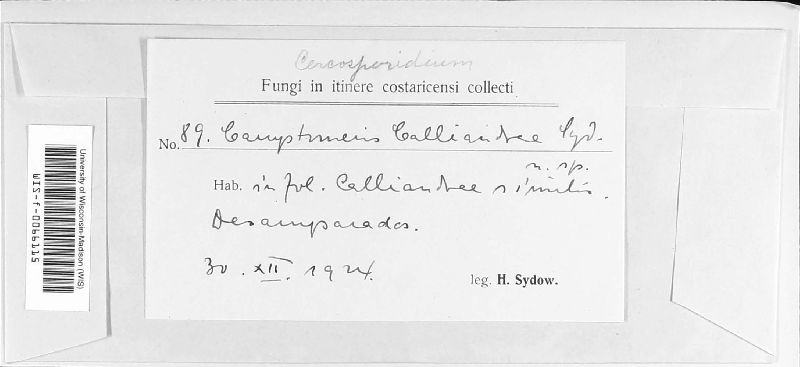 Cercosporidium
Fungi in itinere costaricensi collecti
No. 89. Camptomeris Calliandrae Syd.
n. sp.
Hab. in fol. Calliandrae similis.
Desamparados.
30. XII. 1924.
leg. H. Sydow.
University of Wisconsin-Madison (WIS)
WIS-f-0066115